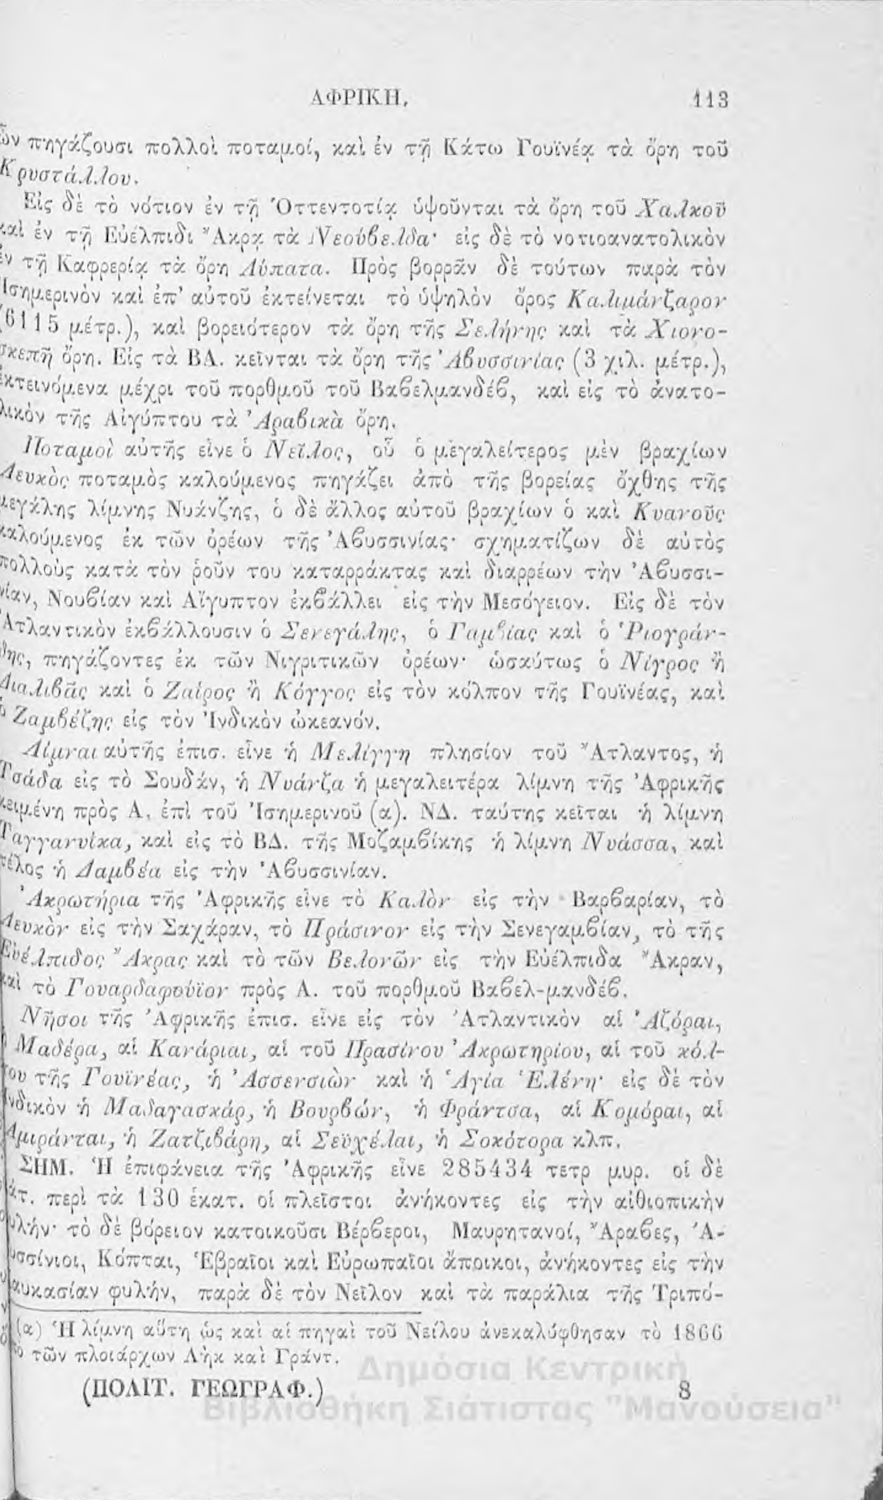 ΑΦΡΙΚΗ, 113
ὧν πηγάζουσι πολλοὶ ποταμοί, καὶ ἐν τῇ Κάτω Γουϊνέᾳ τὰ ὄρη τοῦ
Κρυστάλλου.
Εἰς δὲ τὸ νότιον ἐν τῇ Ὁττεντοτίᾳ ὑψοῦνται τὰ ὄρη τοῦ Χαλκοῦ
καὶ ἐν τῇ Εὐέλπιδι Ἄκρᾳ τὰ Νεούβελδα· εἰς δὲ τὸ νοτιοανατολικὸν
ἐν τῇ Καφρερίᾳ τὰ ὄρη Λύπατα. Πρὸς βορρᾶν δὲ τούτων παρὰ τὸν
Ἰσημερινὸν καὶ ἐπ' αὐτοῦ ἐκτείνεται τὸ ὑψηλὸν ὄρος Καλιμάντζαρον
(6115 μέτρ.), καὶ βορειότερον τὰ ὄρη τῆς Σελήνης καὶ τὰ Χιονο-
σκεπῆ ὄρη. Εἰς τὰ ΒΑ. κεῖνται τὰ ὄρη τῆς Ἀβυσσινίας (3 χιλ. μέτρ.),
ἐκτεινόμενα μέχρι τοῦ πορθμοῦ τοῦ Βαβελμανδέβ, καὶ εἰς τὸ ἀνατο-
λικὸν τῆς Αἰγύπτου τὰ Ἀραβικὰ ὄρη.
Ποταμοὶ αὐτῆς εἶνε ὁ Νεῖλος, οὗ ὁ μεγαλείτερος μὲν βραχίων
Λευκὸς ποταμὸς καλούμενος πηγάζει ἀπὸ τῆς βορείας ὄχθης τῆς
μεγάλης λίμνης Νυάνζης, ὁ δὲ ἄλλος αὐτοῦ βραχίων ὁ καὶ Κυανοῦς
καλούμενος ἐκ τῶν ὀρέων τῆς Ἀβυσσινίας· σχηματίζων δὲ αὐτὸς
πολλοὺς κατὰ τὸν ῥοῦν του καταρράκτας καὶ διαρρέων τὴν Ἀβυσσι-
νίαν, Νουβίαν καὶ Αἴγυπτον ἐκβάλλει εἰς τὴν Μεσόγειον. Εἰς δὲ τὸν
Ἀτλαντικὸν ἐκβάλλουσιν ὁ Σενεγάλης, ὁ Γαμβίας καὶ ὁ Ῥιογράν-
δης, πηγάζοντες ἐκ τῶν Νιγριτικῶν ὀρέων· ὡσαύτως ὁ Νίγρος ἢ
Διαλιβᾶς καὶ ὁ Ζαΐρος ἢ Κόγγος εἰς τὸν κόλπον τῆς Γουϊνέας, καὶ
ὁ Ζαμβέζης εἰς τὸν Ἰνδικὸν ὠκεανόν.
Λίμναι αὐτῆς ἐπισ. εἶνε ἡ Μελίγγη πλησίον τοῦ Ἄτλαντος, ἡ
Τσάδα εἰς τὸ Σουδάν, ἡ Νυάνζα ἡ μεγαλειτέρα λίμνη τῆς Ἀφρικῆς
κειμένη πρὸς Α. ἐπὶ τοῦ Ἰσημερινοῦ (α). ΝΔ. ταύτης κεῖται ἡ λίμνη
Ταγγανυίκα, καὶ εἰς τὸ ΒΔ. τῆς Μοζαμβίκης ἡ λίμνη Νυάσσα, καὶ
τέλος ἡ Δαμβέα εἰς τὴν Ἀβυσσινίαν.
Ἀκρωτήρια τῆς Ἀφρικῆς εἶνε τὸ Καλὸν εἰς τὴν Βαρβαρίαν, τὸ
Λευκὸν εἰς τὴν Σαχάραν, τὸ Πράσινον εἰς τὴν Σενεγαμβίαν, τὸ τῆς
Εὐέλπιδος Ἄκρας καὶ τὸ τῶν Βελονῶν εἰς τὴν Εὐέλπιδα Ἄκραν,
καὶ τὸ Γουαρδαφουῖον πρὸς Α. τοῦ πορθμοῦ Βαβελ-μανδέβ.
Νῆσοι τῆς Ἀφρικῆς ἐπισ. εἶνε εἰς τὸν Ἀτλαντικὸν αἱ Ἀζόραι,
Μαδέρα, αἱ Κανάριαι, αἱ τοῦ Πρασίνου Ἀκρωτηρίου, αἱ τοῦ κόλ-
που τῆς Γουϊνέας, ἡ Ἀσσενσιὼν καὶ ἡ Ἁγία Ἑλένη· εἰς δὲ τὸν
Ἰνδικὸν ἡ Μαδαγασκάρ, ἡ Βουρβών, ἡ Φράντσα, αἱ Κομόραι, αἱ
Ἀμιράνται, ἡ Ζατζιβάρη, αἱ Σεϋχέλαι, ἡ Σοκότορα κλπ.
ΣΗΜ. Ἡ ἐπιφάνεια τῆς Ἀφρικῆς εἶνε 285434 τετρ μυρ. οἱ δὲ
κάτ. περὶ τὰ 130 ἑκατ. οἱ πλεῖστοι ἀνήκοντες εἰς τὴν αἰθιοπικὴν
φυλήν· τὸ δὲ βόρειον κατοικοῦσι Βέρβεροι, Μαυρητανοί, Ἄραβες, Ἀ-
βυσσίνιοι, Κόπται, Ἑβραῖοι καὶ Εὐρωπαῖοι ἄποικοι, ἀνήκοντες εἰς τὴν
Καυκασίαν φυλήν, παρὰ δὲ τὸν Νεῖλον καὶ τὰ παράλια τῆς Τριπό-
(α) Ἡ λίμνη αὕτη ὡς καὶ αἱ πηγαὶ τοῦ Νείλου ἀνεκαλύφθησαν τὸ 1866
τῶν πλοιάρχων Λὴκ καὶ Γράντ.
(ΠΟΛΙΤ. ΓΕΩΓΡΑΦ.) 8
Δημόσια Κεντρική
Βιβλιοθήκη Σιάτιστας "Μανούσεια"